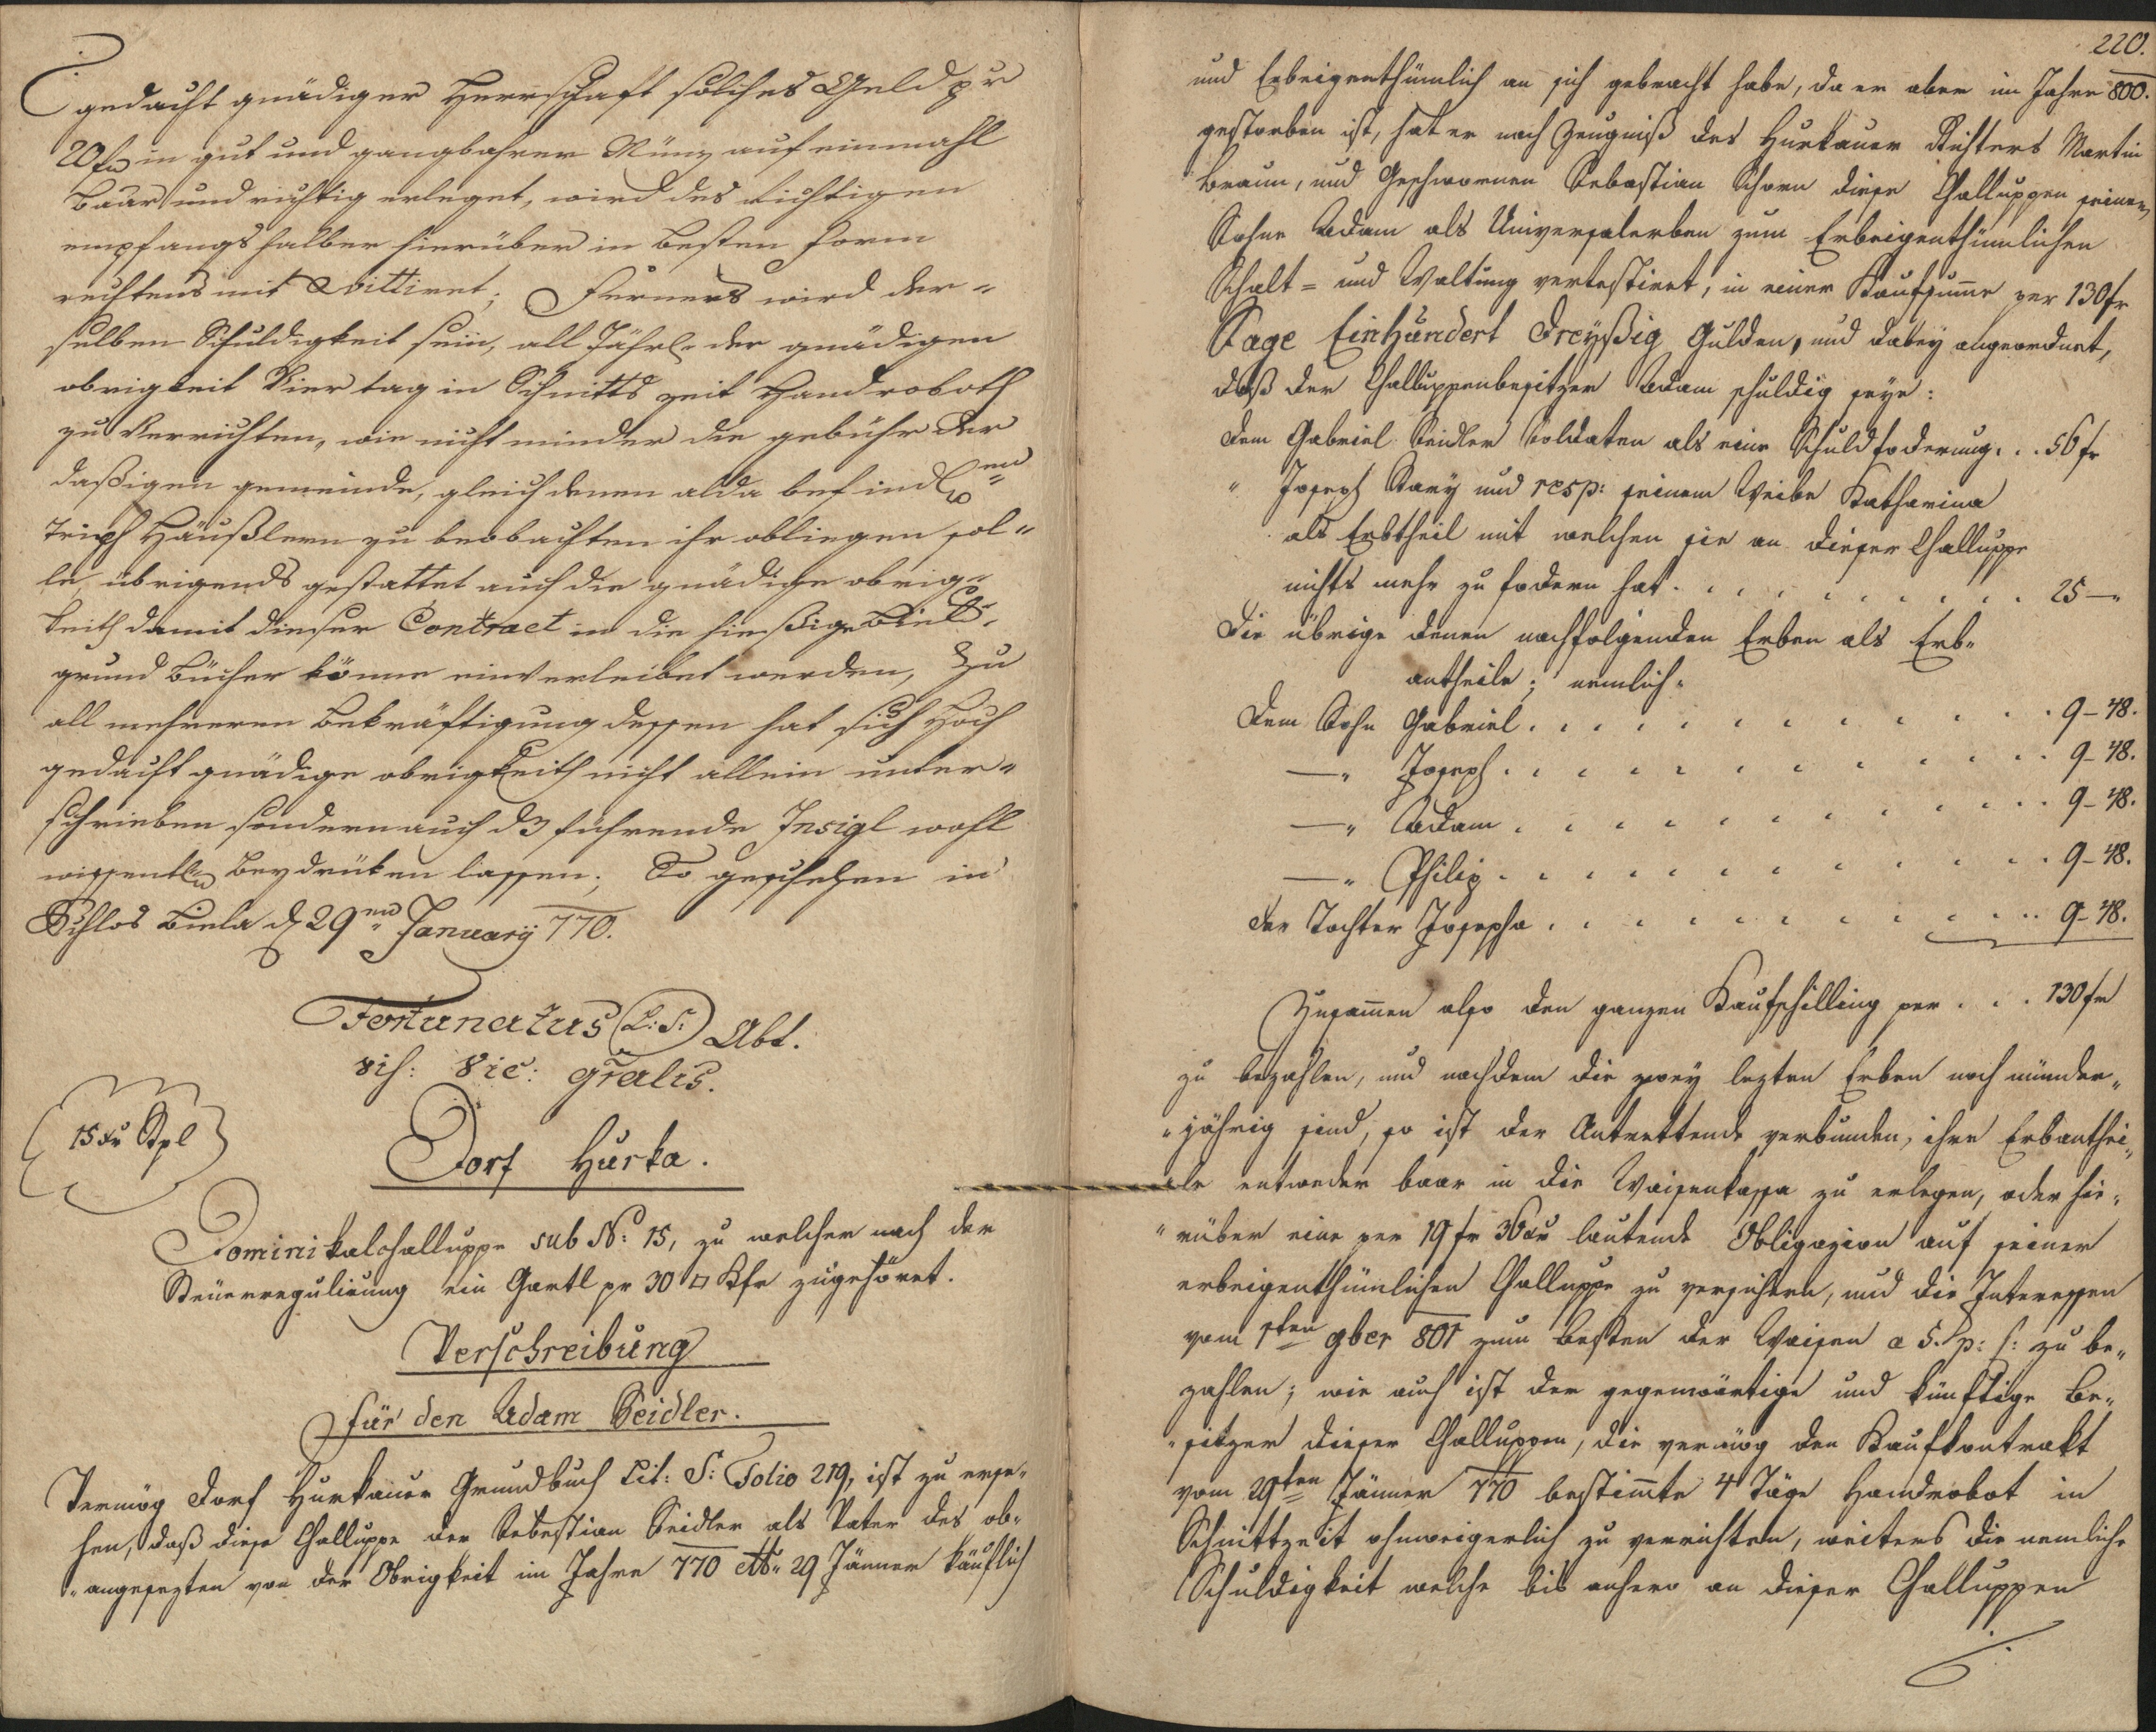 gedacht gnädiger Herrschaft solches Geld pr
20 fr in gut und gangbahrer Münz auf einmahl
baar und richtig erleget, wird des richtigen
empfangs halber hierüber in besten form
rechtens mit Quittiret; Ferners wird der-
selben Schuldigkeit sein, all Jährl. der gnädigen
obrigkeit Vier tag in Schnitts zeit Handroboth
zu Verrichten, wie nicht minder die gebühr der
dasigen gemeinde, gleich denen alda befindl.en
Häußlern zu beobachten ihr obliegen sol-
le, übrigends gestattet auch die gnädige obrig-
keith damit dieser Contract in die hiesige
grund bücher könne einverleibet werden, Zu
all mehreren bekräftigung dessen hat sich Hoch
gedacht gnädige obrigkeith nicht allein unter-
schrieben sondern auch dz führende Insigl wohl
wissentl. beydrüken lassen; So geschehen in
Schlos Biela d 29en January 770.
Fortunatus (L: S:) Abt.
vis: Vic: gralis.
15 xr Stpl
Dorf Hurka.
Dominikalchalluppe sub No: 15, zu welcher nach der
Steuerregulirung ein Gartl pr 30 □ Klfr zugehöret.
Verschreibung
für den Adam Seidler.
Vermög Dorf Hurkauer Grundbuch Lit: S: Folio 219, ist zu erse-
hen, daß diese Challuppe der Sebastian Seidler als Vater des ob-
"angesezten von der Obrigkeit im Jahre 770 dtto 29 Jänner käuflich
220.
und Erbeigenthümlich an sich gebracht habe, da er aber im Jahre 800.
gestorben ist, hat er nach Zeugniß des Hurkauer Richters Martin
Braun, und Geschwornen Sebastian Schorn diese Challuppen seinem
Sohne Adam als Universalerben zum Erbeigenthümlichen
Schalt- und Waltung vertestiret, in einer Kaufsumme per 130 fr
Sage Einhundert Dreyßig Gulden, und dabey angeordnet,
daß der Challuppenbesitzer Adam schuldig seye:
Dem Gabriel Seidler Soldaten als eine Schuldfoderung . . . 56 fr
" Joseph Stary und resp: seinem Weibe Katharina
als Erbtheil mit welchen sie an dieser Challuppe
nichts mehr zu fodern hat . . . . . . . . . . 25 —"
Die übrige denen nachfolgenden Erben als Erb-
antheile; nemlich"
Dem Sohn Gabriel . . . . . . . . . . . . 9 - 48.
—" Joseph . . . . . . . . . . . . 9 - 48.
—" Adam . . . . . . . . . . . . 9 - 48.
—" Philip . . . . . . . . . . . . 9 - 48.
der Tochter Josepha . . . . . . . . . . . . 9 - 48.
Zusammen also den ganzen Kaufschilling per . . . 130 fr
zu bezahlen, und nachdem die zwey lezten Erben noch minder-
"jährig sind, so ist der Antrettende verbunden, ihre Erbanthei-
"le entweder baar in die Waisenkassa zu erlegen, oder hie-
"rüber eine per 19 fr 36 xr lautende Obligazion auf seiner
erbeigenthümlichen Challuppe zu versichern, und die Interessen
vom 1ten 9ber 801 zum besten der Waisen a 5. p: c: zu be-
zahlen; wie auch ist der gegenwärtige und künftige Be-
"sitzer dieser Challuppen, die vermög den Kaufkontrakt
vom 29ten Jänner 770 bestimmte 4 Täge Handrobot in
Schnittzeit ohnweigerlich zu verrichten, weiters die nemliche
Schuldigkeit welche bis anhero an dieser Challuppen